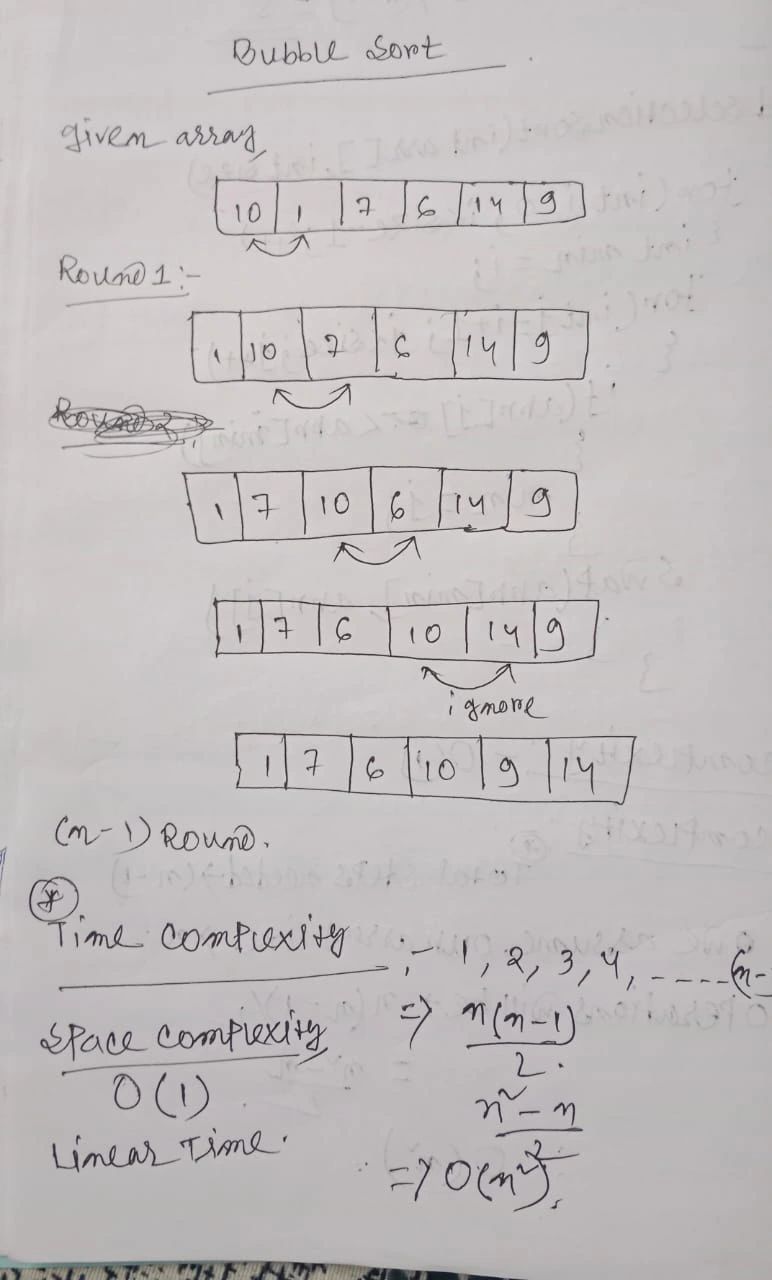 Bubble Sort
given array
10 1 7 6 14 9
Round 1 :-
1 10 7 6 14 9
1 7 10 6 14 9
1 7 6 10 14 9
ignore
1 7 6 10 9 14
(n-1) Round.
*
Time complexity :- 1, 2, 3, 4, ----- (n-
=> n(n-1)
2.
Space complexity
O(1)
n² - n
2
Linear Time.
=> O(n²).